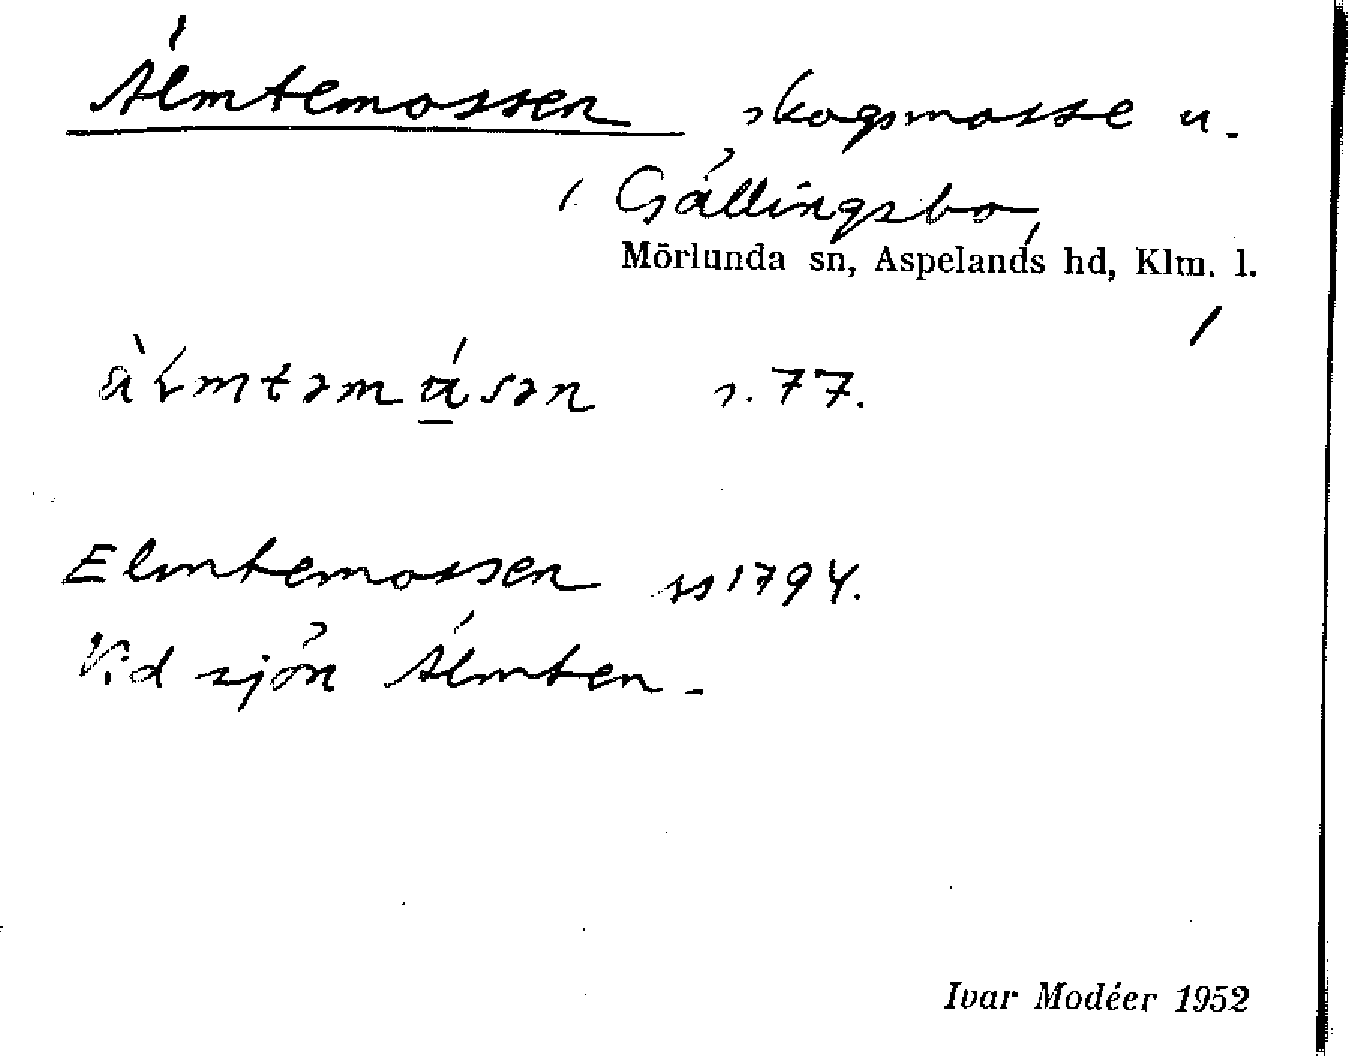 Älmtemossen skogsmosse u.
i Gällingsbo,
Mörlunda sn, Aspelands hd, Klm. l.
s. 77.
Elmtemossen ss 1794.
Vid sjön Älmten.
Ivar Modéer 1952